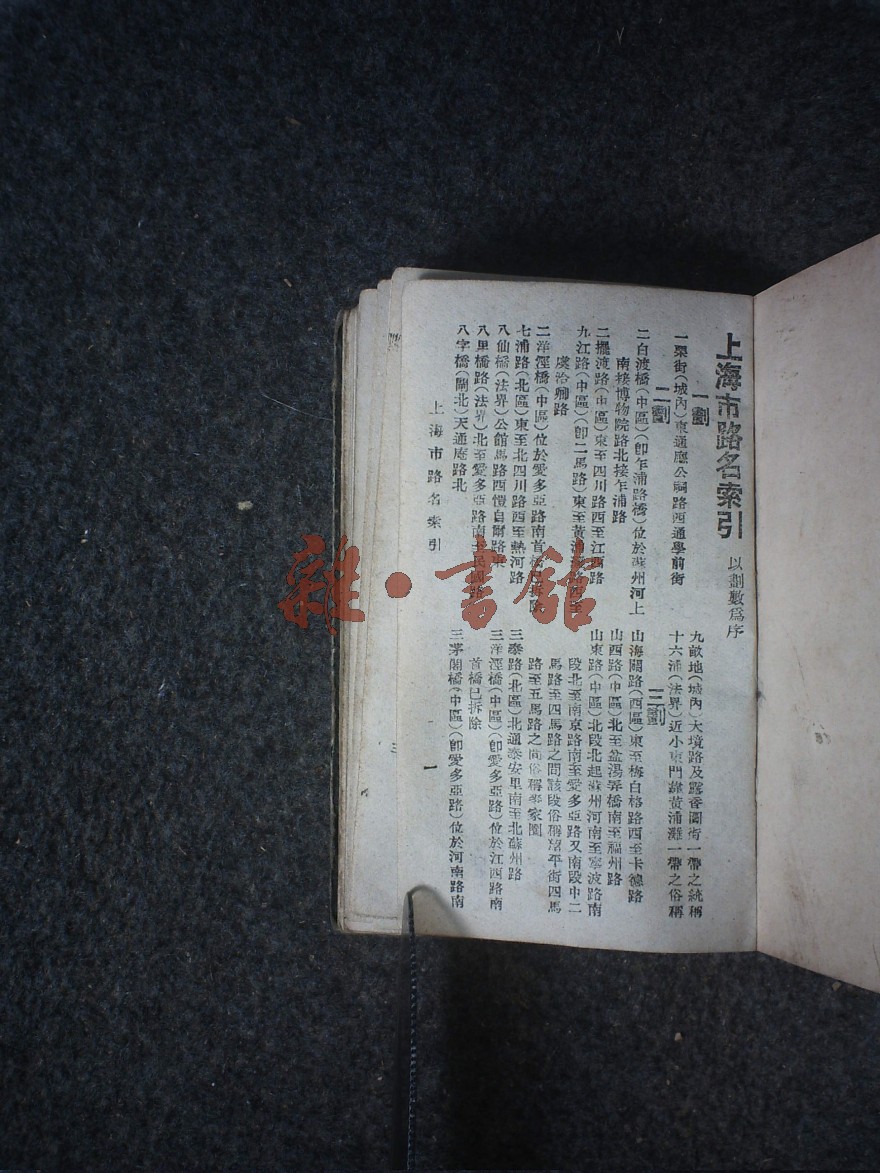 上海市路名索引
以劃數爲序
一劃
一粟街(城內)東通廳公祠路西通學前街
二劃
二白渡橋(中區)(卽乍浦路橋)位於蘇州河上
南接博物院路北接乍浦路
二擺渡路(中區)東至四川路西至江西路
九江路(中區)(卽二馬路)東至黃浦灘路西至
虞洽卿路
二洋涇橋(中區)位於愛多亞路南首橋已拆除
七浦路(北區)東至北四川路西至熱河路
八仙橋(法界)公館馬路西愷自爾路東
八里橋路(法界)北至愛多亞路南至民國路
八字橋(閘北)天通庵路北
九畝地(城內)大境路及露香園街一帶之統稱
十六浦(法界)近小東門錄黃浦灘一帶之俗稱
三劃
山海關路(西區)東至梅白格路西至卡德路
山西路(中區)北至盆湯弄橋南至福州路
山東路(中區)北段北起蘇州河南至寧波路南
段北至南京路南至愛多亞路又南段中二
馬路至四馬路之間該段俗稱望平街四馬
路至五馬路之間俗稱麥家圈
三泰路(北區)北通泰安里南至北蘇州路
三洋涇橋(中區)(卽愛多亞路)位於江西路南
首橋已拆除
三茅閣橋(中區)(卽愛多亞路)位於河南路南
上海市路名索引
一
雜·書館